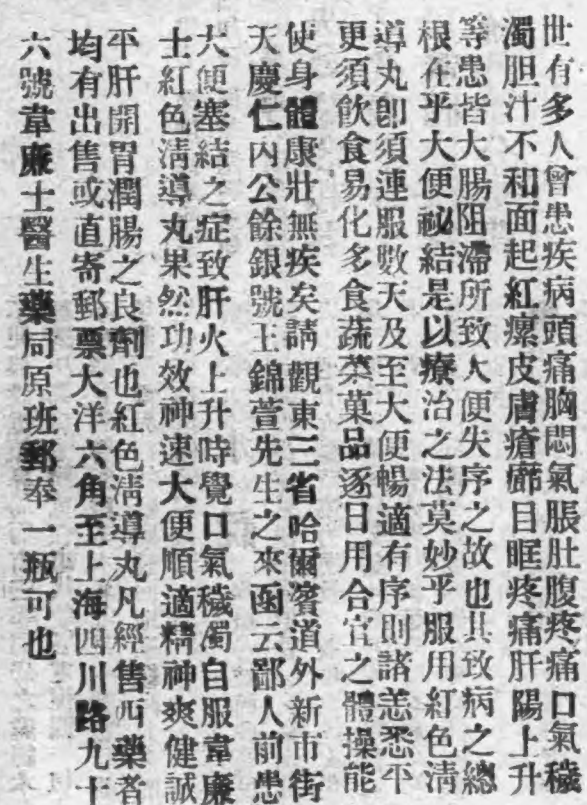 世有多人曾患疾病頭痛胸悶氣脹肚腹疼痛口氣穢
濁胆汁不和面起紅瘰皮膚瘡癤目眶疼痛肝陽上升
等患皆大腸阻滯所致大便失序之故也其致病之總
根在乎大便祕結是以療治之法莫妙乎服用紅色清
導丸卽須連服數天及至大便暢適有序則諸恙悉平
更須飲食易化多食蔬菜菓品逐日用合宜之體操能
使身體康壯無疾矣請觀東三省哈爾濱道外新市街
天慶仁內公餘銀號王錦萱先生之來函云鄙人前患
大便塞結之症致肝火上升時覺口氣穢濁自服韋廉
士紅色淸導丸果然功效神速大便順適精神爽健誠
平肝開胃潤腸之良劑也紅色淸導丸凡經售西藥者
均有出售或直寄郵票大洋六角至上海四川路九十
六號韋廉士醫生藥局原班郵奉一瓶可也